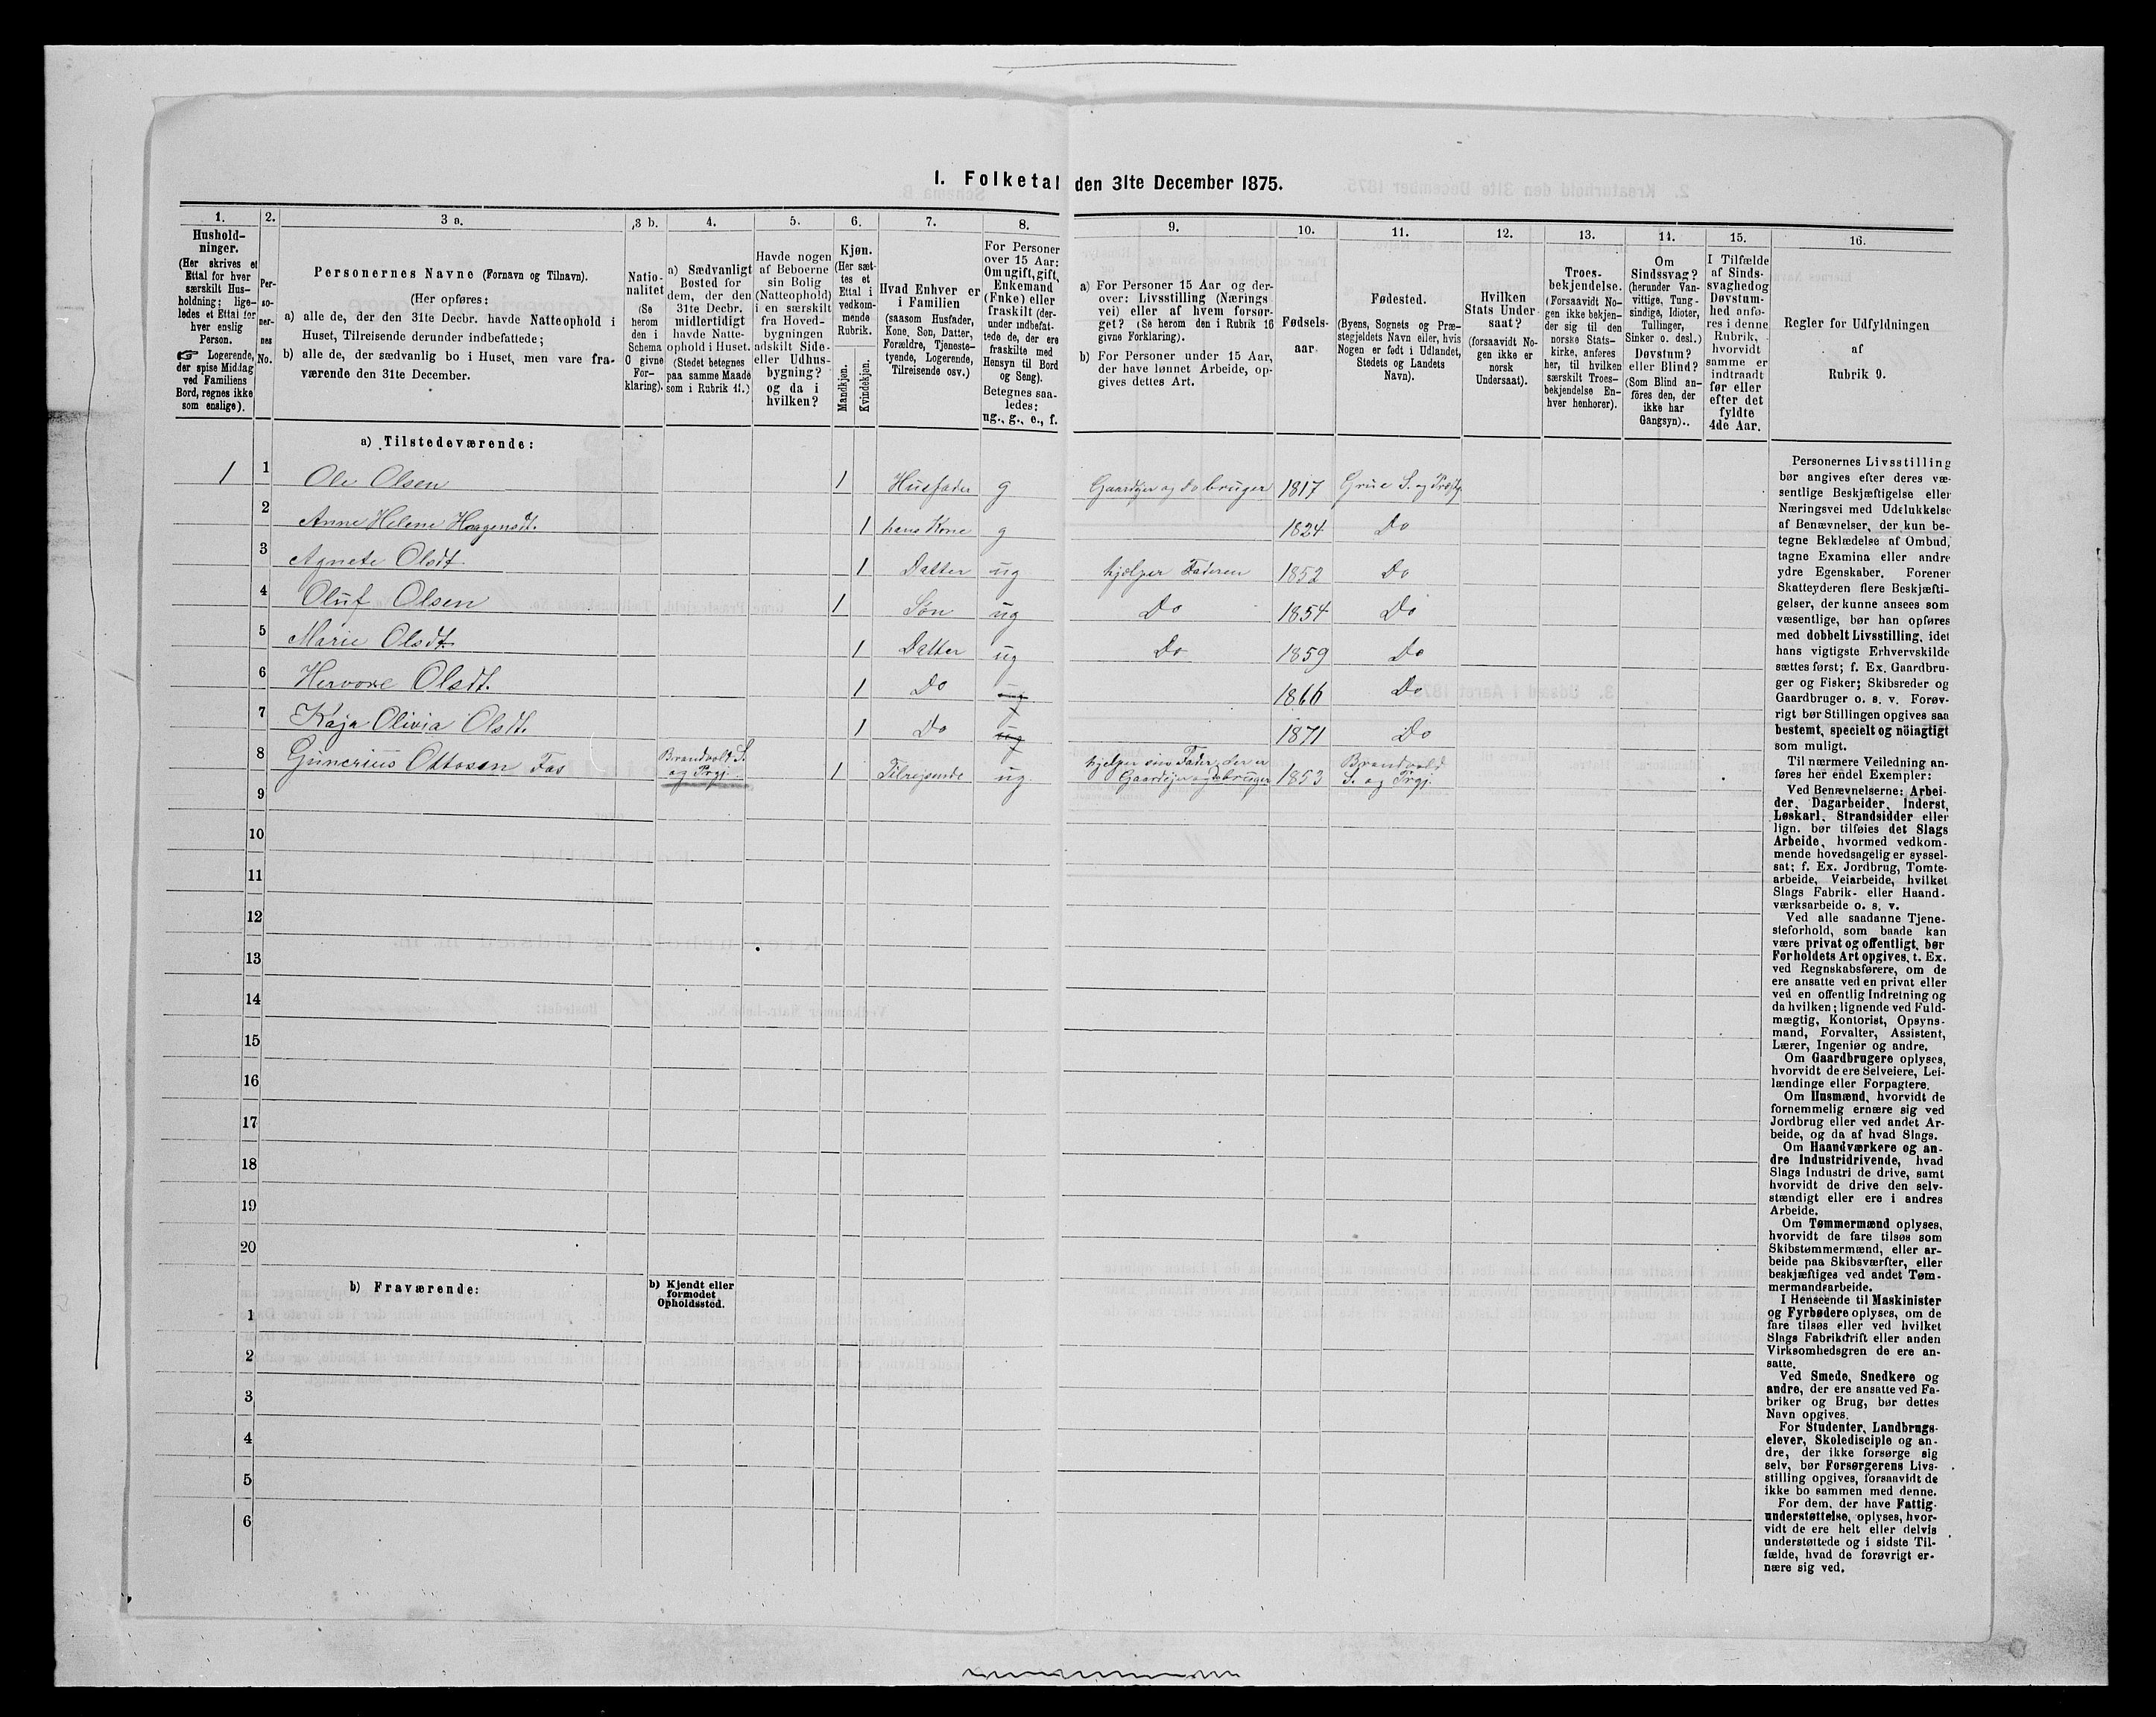 I. Folketal den 31te December 1875.
1. 2. 3 a. 3 b. 4. 5. 6. 7. 8. 9. 10. 11. 12. 13. 14. 15. 16.
Hushold-
ninger.
(Her skrives et
Ettal for hver
særskilt Hus-
holdning; lige-
ledes et Ettal for
hver enslig
Person.
☞ Logerende,
der spise Middag
ved Familiens
Bord, regnes ikke
som enslige).
Per-
so-
ner-
nes
No.
Personernes Navne (Fornavn og Tilnavn).
(Her opføres:
a) alle de, der den 31te Decbr. havde Natteophold i
Huset, Tilreisende derunder indbefattede;
b) alle de, der sædvanlig bo i Huset, men vare fra-
værende den 31te December.
Natio-
nalitet
(Se
herom
den i
Schema
O givne
For-
klaring).
a) Sædvanligt
Bosted for
dem, der den
31te Decbr.
midlertidigt
havde Natte-
ophold i Huset.
(Stedet betegnes
paa samme Maade
som i Rubrik 11.)
Havde nogen
af Beboerne
sin Bolig
(Natteophold)
i en særskilt
fra Hoved-
bygningen
adskilt Side-
eller Udhus-
bygning?
og da i
hvilken?
Kjøn.
(Her sæt-
tes et
Ettal i
vedkom-
mende
Rubrik.
Mandkjøn.
Kvindekjøn.
Hvad Enhver er
i Familien
(saasom Husfader,
Kone, Søn, Datter,
Forældre, Tjeneste-
tyende, Logerende,
Tilreisende osv.)
For Personer
over 15 Aar:
Om ugift, gift,
Enkemand
(Enke) eller
fraskilt (der-
under indbefat-
tede de, der ere
fraskilte med
Hensyn til Bord
og Seng).
Betegnes saa-
ledes:
ug., g., e., f.
a) For Personer 15 Aar og der-
over: Livsstilling (Nærings
vei) eller af hvem forsør-
get? (Se herom den i Rubrik 16
givne Forklaring).
b) For Personer under 15 Aar,
der have lønnet Arbeide, op-
gives dettes Art.
Fødsels-
aar.
Fødested.
(Byens, Sognets og Præ-
stegjeldets Navn eller, hvis
Nogen er født i Udlandet,
Stedets og Landets
Navn).
Hvilken
Stats Under
saat?
(forsaavidt No-
gen ikke er
norsk
Undersaat).
Troes-
bekjendelse.
(Forsaavidt No-
gen ikke bekjen-
der sig til den
norske Stats-
kirke, anføres
her, til hvilken
særskilt Troes-
bekjendelse En-
hver henhører).
Om
Sindssvag?
(herunder Van-
vittige, Tung-
sindige, Idioter,
Tullinger,
Sinker o. desl.)
Døvstum?
eller Blind?
(Som Blind an-
føres den, der
ikke har
Gangsyn)..
I Tilfælde
af Sinds-
svaghed og
Døvstum-
hed anfø-
res i denne
Rubrik,
hvorvidt
samme er
indtraadt
før eller
efter det
fyldte
4de Aar.
Regler for Udfyldningen
af
Rubrik 9.
a) Tilstedeværende:
1 1 Ole Olsen 1 Husfader g Gaardejer og do bruger 1817 Grue S. og Præstg.
2 Anne Helene Haagensdt. 1 hans Kone g 1824 Do
3 Agnete Olsdt. 1 Datter ug hjelper Faderen 1852 Do
4 Oluf Olsen 1 Søn ug Do 1854 Do
5 Marie Olsdt. 1 Datter ug Do 1859 Do
6 Olsdt. 1 Do ug 1866 Do
7 Kaja Olivia Olsdt. 1 Do ug 1871 Do
8 Gunerius Ottosen Fas Brandvold S. og Prgj. 1 Tilrejsende ug hjelper sin Fader, der er Gaardejer og do bruger 1853 Brandvold S. og Prgj.
9
10
11
12
13
14
15
16
17
18
19
20
b) Fraværende:
b) Kjendt eller
formodet
Opholdssted.
1
2
3
4
5
6
Personernes Livsstilling
bør angives efter deres væ-
sentlige Beskjæftigelse eller
Næringsvei med Udelukkelse
af Benævnelser, der kun be-
tegne Beklædelse af Ombud,
tagne Examina eller andre
ydre Egenskaber. Forener
Skatteyderen flere Beskjæfti-
gelser, der kunne ansees som
væsentlige, bør han opføres
med dobbelt Livsstilling, idet
hans vigtigste Erhvervskilde
sættes først; f. Ex. Gaardbru-
ger og Fisker; Skibsreder og
Gaardbruger o. s. v. Forøv-
rigt bør Stillingen opgives saa
bestemt, specielt og nöiagtigt
som muligt.
Til nærmere Veiledning an-
føres her endel Exempler:
Ved Benævnelserne: Arbei-
der, Dagarbeider, Inderst,
Løskarl, Strandsidder eller
lign. bør tilføies det Slags
Arbeide, hvormed vedkom-
mende hovedsagelig er syssel-
sat; f. Ex. Jordbrug, Tomte-
arbeide, Veiarbeide, hvilket
Slags Fabrik- eller Haand-
værksarbeide o. s. v.
Ved alle saadanne Tjene-
steforhold, som baade kan
være privat og offentligt, bør
Forholdets Art opgives, t. Ex.
ved Regnskabsførere, om de
ere ansatte ved en privat eller
ved en offentlig Indretning og
da hvilken; lignende ved Fuld-
mægtig, Kontorist, Opsyns-
mand, Forvalter, Assistent,
Lærer, Ingeniør og andre.
Om Gaardbrugere oplyses,
hvorvidt de ere Selveiere, Lei-
lændinge eller Forpagtere.
Om Husmænd, hvorvidt de
fornemmelig ernære sig ved
Jordbrug eller ved andet Ar-
beide, og da af hvad Slags.
Om Haandværkere og an-
dre Industridrivende, hvad
Slags Industri de drive, samt
hvorvidt de drive den selv-
stændigt eller ere i andres
Arbeide.
Om Tømmermænd oplyses,
hvorvidt de fare tilsøs som
Skibstømmermænd, eller ar-
beide paa Skibsværfter, eller
beskjæftiges ved andet Tøm-
mermandarbeide.
I Henseende til Maskinister
og Fyrbødere oplyses, om de
fare tilsøs eller ved hvilket
Slags Fabrikdrift eller anden
Virksomhedsgren de ere an-
satte.
Ved Smede, Snedkere og
andre, der ere ansatte ved Fa-
briker og Brug, bør dettes
Navn opgives.
For Studenter, Landbrugs-
elever, Skoledisciple og an-
dre, der ikke forsørge sig
selv, bør Forsørgerens Livs-
stilling opgives, forsaavidt de
ikke bo sammen med denne.
For dem, der have Fattig-
understøttelse, oplyses, hvor-
vidt de ere helt eller delvis
understøttede og i sidste Til-
fælde, hvad de forøvrigt er-
nære sig ved.